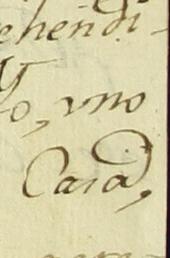 ehendi-
o, vno
Casa,